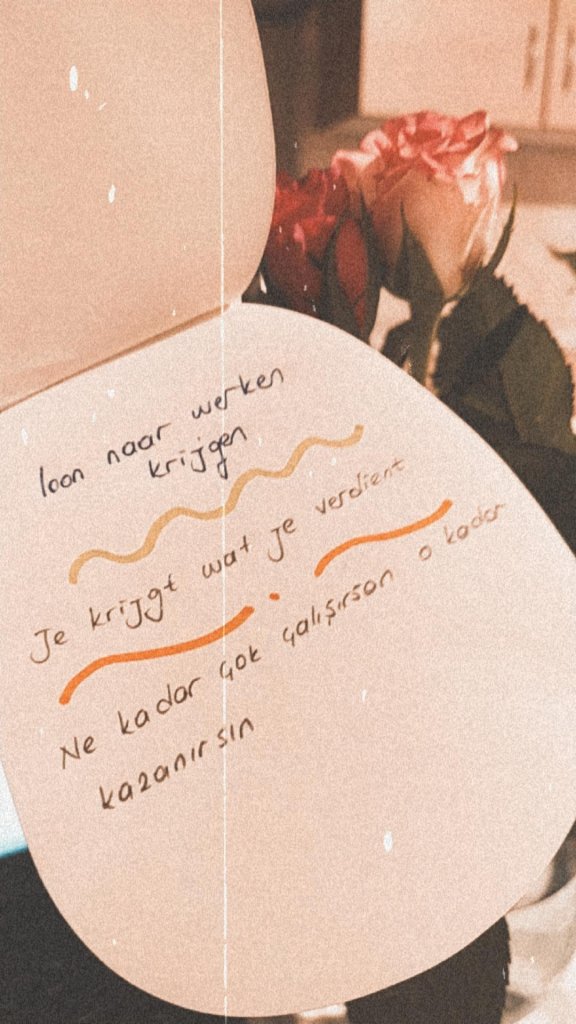 loon naar werken
krijgen
Je krijgt wat je verdient
Ne kadar çok çalışırsan o kadar
kazanırsın